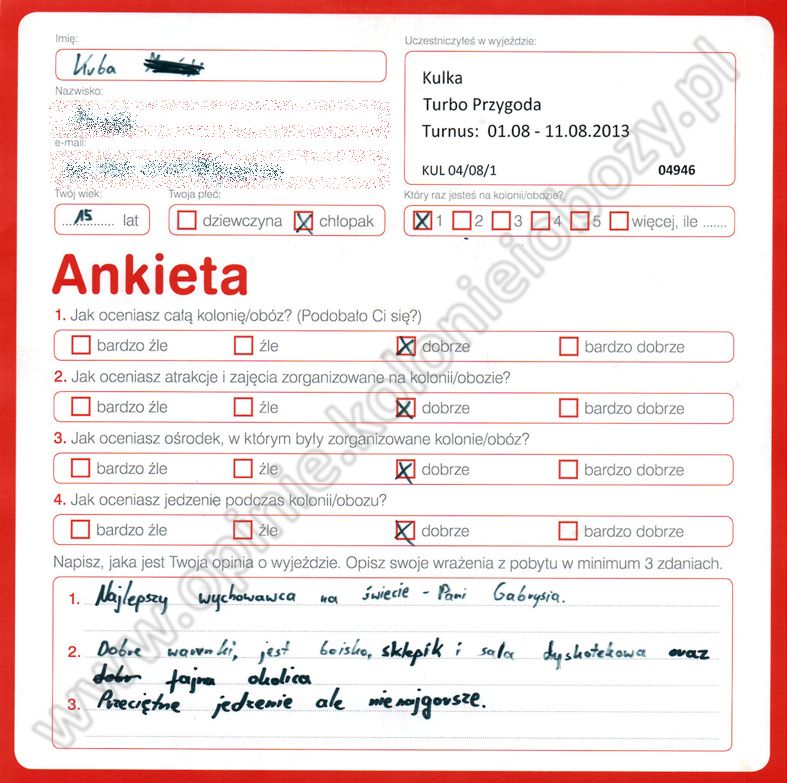 Imię:
Kuba
Uczestniczyłeś w wyjeździe:
Kulka
Turbo Przygoda
Turnus: 01.08 - 11.08.2013
KUL 04/08/1 04946
Nazwisko:
e-mail:
Twój wiek:
15 lat
Twoja płeć:
dziewczyna chłopak
Który raz jesteś na kolonii/obozie?
1 2 3 4 5 więcej, ile .......
Ankieta
1. Jak oceniasz całą kolonię/obóz? (Podobało Ci się?)
bardzo źle źle dobrze bardzo dobrze
2. Jak oceniasz atrakcje i zajęcia zorganizowane na kolonii/obozie?
bardzo źle źle dobrze bardzo dobrze
3. Jak oceniasz ośrodek, w którym były zorganizowane kolonie/obóz?
bardzo źle źle dobrze bardzo dobrze
4. Jak oceniasz jedzenie podczas kolonii/obozu?
bardzo źle źle dobrze bardzo dobrze
Napisz, jaka jest Twoja opinia o wyjeździe. Opisz swoje wrażenia z pobytu w minimum 3 zdaniach.
1. Najlepszy wychowawca na świecie - Pani Gabrysia.
2. Dobre warunki, jest boisko, sklepik i sala dyskotekowa oraz
fajna okolica
3. Przeciętne jedzenie ale nienajgorsze.
www.opinie.kolonieiobozy.pl